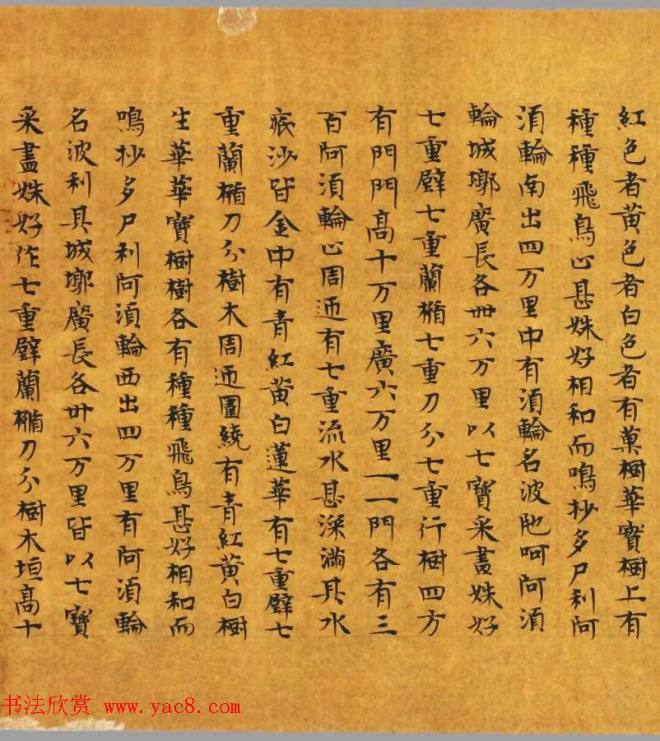 紅色者黄色者白色者有菓樹華寶樹上有
種種飛鳥心甚姝好相和而鳴抄多尸利阿
湏輪南出四万里中有湏輪名波陁呵阿湏
輪城墎廣長各卌六万里以七寶采畫姝好
七重壁七重蘭楯七重刀分七重行樹四方
有門門高十万里廣六万里一一門各有三
百阿湏輪心周迊有七重流水甚深滿其水
底沙皆金中有青紅黄白蓮華有七重壁七
重蘭楯刀分樹木周迊圍繞有青紅黄白樹
生華華寶樹樹各有種種飛鳥甚好相和而
鳴抄多尸利阿湏輪西出四万里有阿湏輪
名波利具城墎廣長各卌六万里皆以七寶
采畫姝好作七重壁蘭楯刀分樹木垣高十
书法欣赏 www.yac8.com